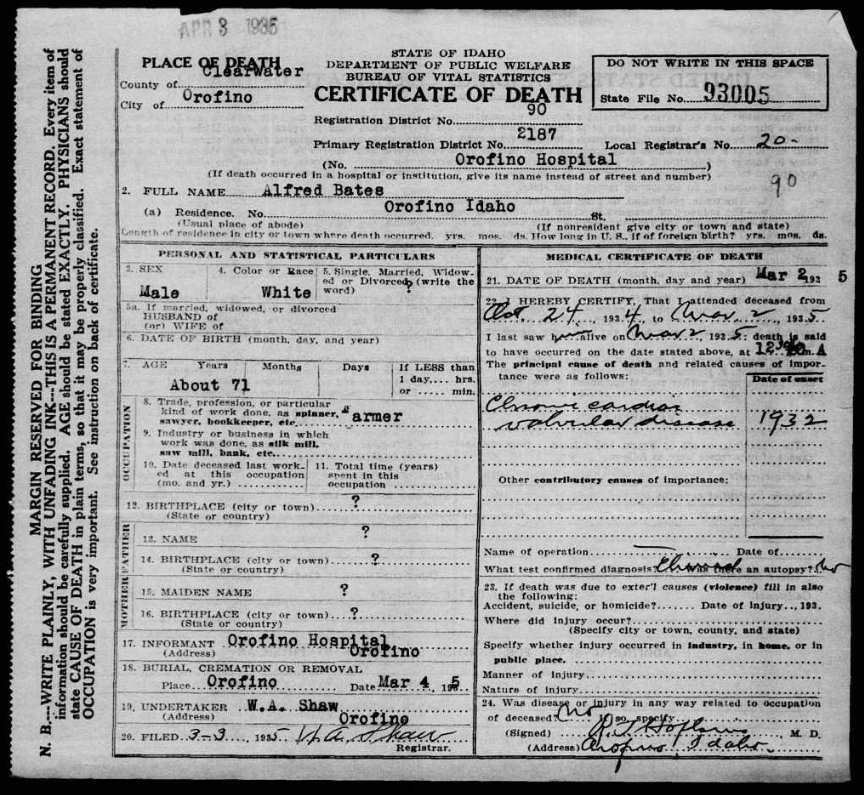 APR 3 1935
MARGIN RESERVED FOR BINDING
N. B.---WRITE PLAINLY, WITH UNFADING INK---THIS IS A PERMANENT RECORD. Every item of
information should be carefully supplied. AGE should be stated EXACTLY. PHYSICIANS should
state CAUSE OF DEATH in plain terms, so that it may be properly classified. Exact statement of
OCCUPATION is very important. See instruction on back of certificate.
STATE OF IDAHO
DEPARTMENT OF PUBLIC WELFARE
BUREAU OF VITAL STATISTICS
CERTIFICATE OF DEATH
PLACE OF DEATH
County of Clearwater
City of Orofino
DO NOT WRITE IN THIS SPACE
State File No. 93005
Registration District No. 90
Primary Registration District No. 2187 Local Registrar's No. 20-
(No. Orofino Hospital)
(If death occurred in a hospital or institution, give its name instead of street and number)
90
2. FULL NAME Alfred Bates
(a) Residence. No. Orofino Idaho St.
(Usual place of abode) (If nonresident give city or town and state)
Length of residence in city or town where death occurred. yrs. mos. ds. How long in U. S., if of foreign birth? yrs. mos. ds.
PERSONAL AND STATISTICAL PARTICULARS
3. SEX Male
4. Color or Race White
5. Single, Married, Widowed or Divorced (write the word) ?
5a. If married, widowed, or divorced
HUSBAND of
(or) WIFE of
6. DATE OF BIRTH (month, day, and year)
7. AGE Years Months Days If LESS than
1 day,.... hrs.
or ...... min.
About 71
OCCUPATION
8. Trade, profession, or particular
kind of work done, as spinner,
sawyer, bookkeeper, etc. Farmer
9. Industry or business in which
work was done, as silk mill,
saw mill, bank, etc.
10. Date deceased last worked at this occupation (mo. and yr.)
11. Total time (years) spent in this occupation
12. BIRTHPLACE (city or town) ?
(State or country)
FATHER
13. NAME ?
14. BIRTHPLACE (city or town) ?
(State or country)
MOTHER
15. MAIDEN NAME ?
16. BIRTHPLACE (city or town) ?
(State or country)
17. INFORMANT Orofino Hospital
(Address) Orofino
18. BURIAL, CREMATION OR REMOVAL
Place Orofino Date Mar 4, 1935
19. UNDERTAKER W.A. Shaw
(Address) Orofino
20. FILED 3-3, 1935 W.A. Shaw
Registrar.
MEDICAL CERTIFICATE OF DEATH
21. DATE OF DEATH (month, day and year) Mar 2 193 5
22. I HEREBY CERTIFY, That I attended deceased from
Oct. 24, 1934, to Mar. 2, 1935
I last saw him alive on Mar 2, 1935; death is said
to have occurred on the date stated above, at m. A
The principal cause of death and related causes of importance were as follows:
Date of onset
Chronic cardiac
valvular disease 1932
Other contributory causes of importance:
Name of operation Date of
What test confirmed diagnosis? Was there an autopsy? No
23. If death was due to exter'l causes (violence) fill in also
the following:
Accident, suicide, or homicide? Date of injury, 193.
Where did injury occur?
(Specify city or town, county, and state)
Specify whether injury occurred in industry, in home, or in
public place.
Manner of injury
Nature of injury
24. Was disease or injury in any way related to occupation
of deceased? No If so, specify
(Signed) M. D.
(Address) Orofino, Idaho